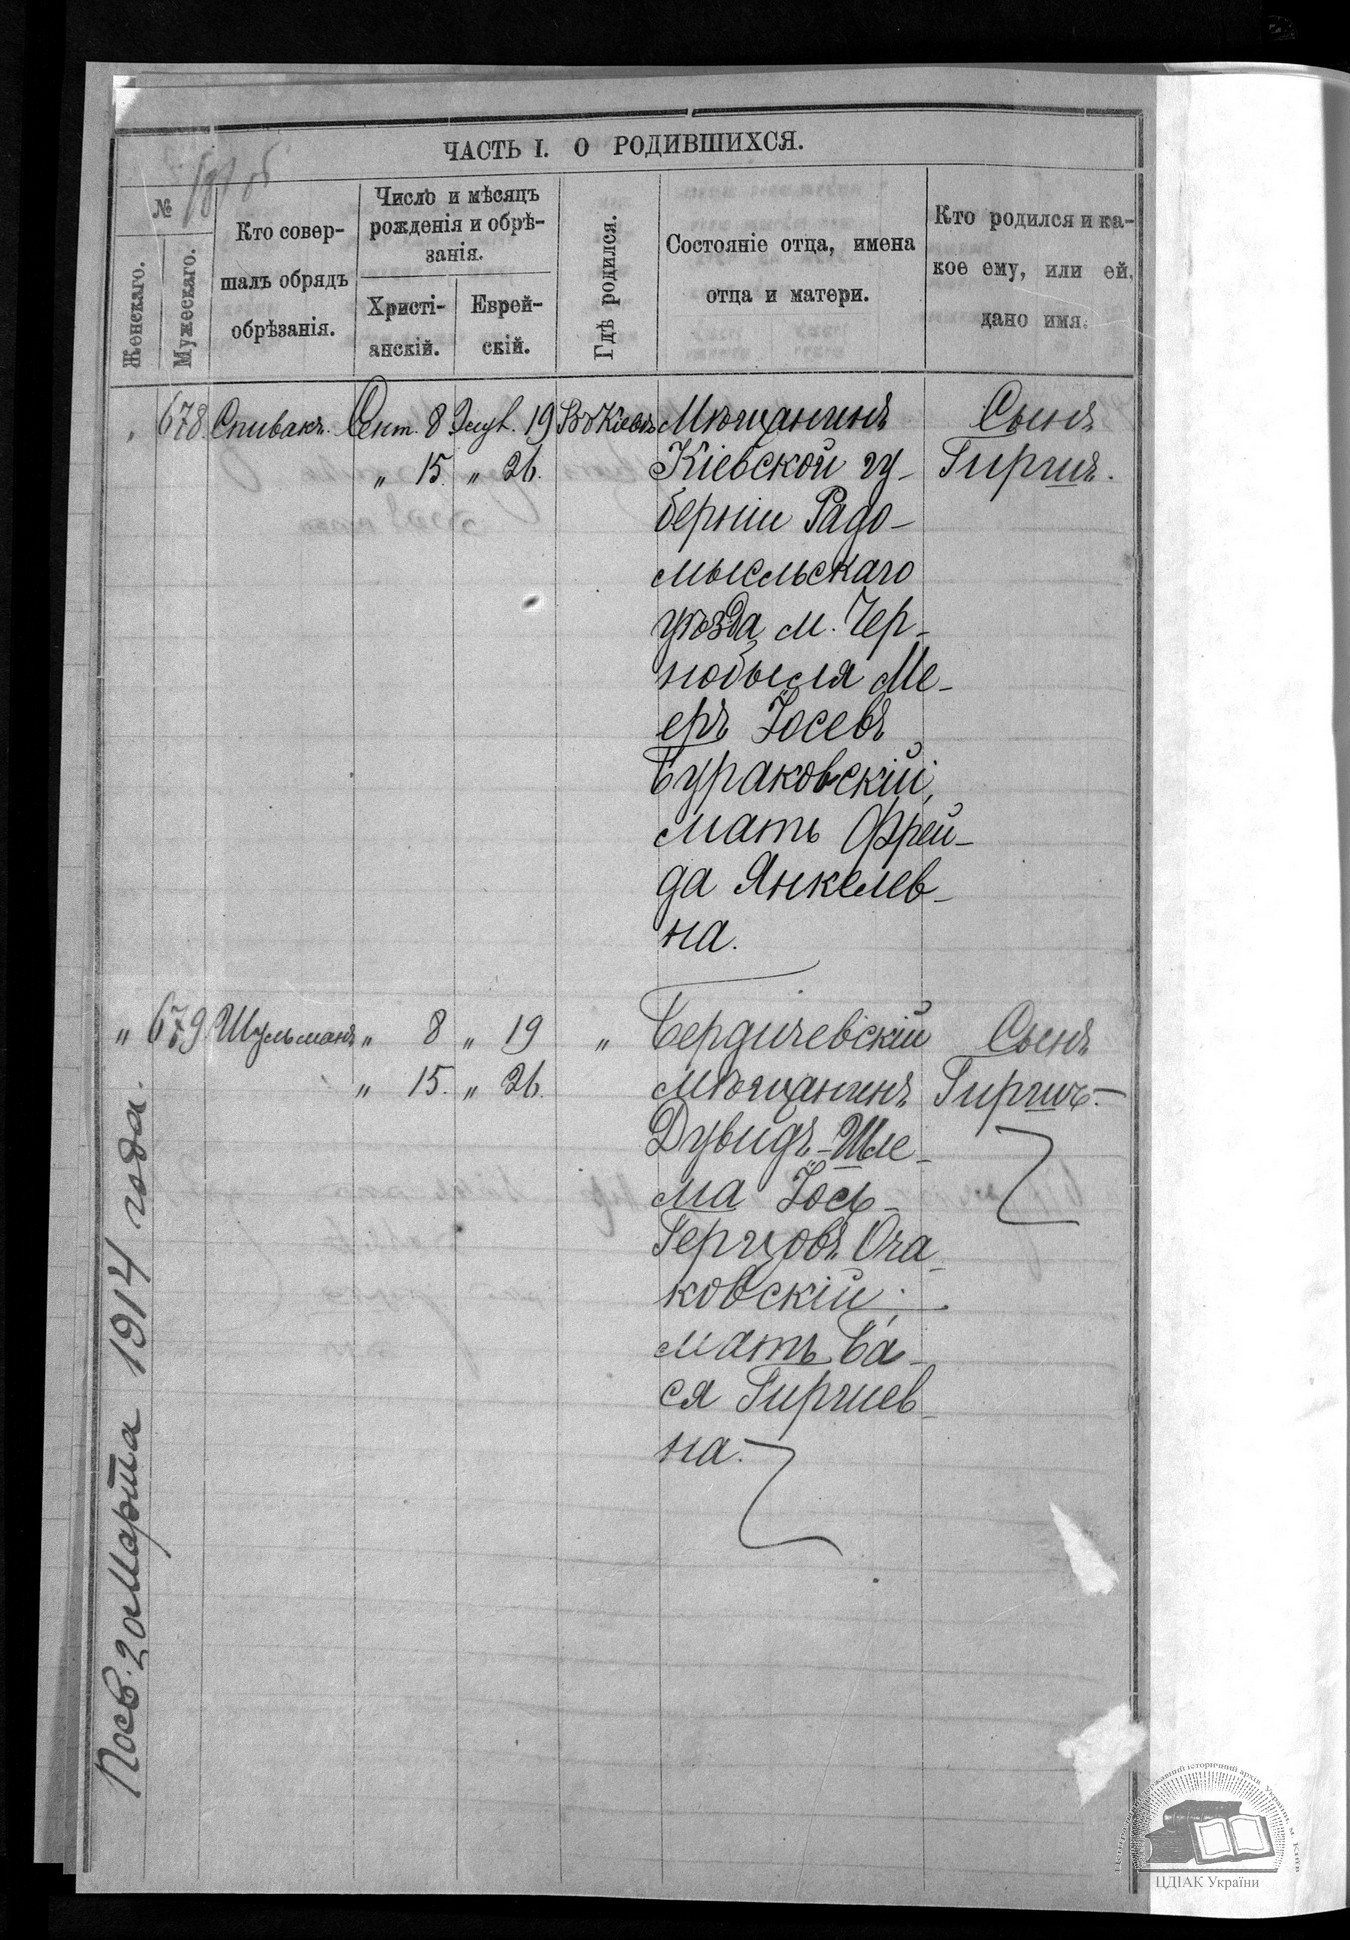 ЧАСТЬ I. О РОДИВШИХСЯ.
№
Женскаго.
Мужескаго.
Кто совер-
шалъ обрядъ
обрѣзанія.
Число и мѣсяцъ
рожденія и обрѣ-
занія.
Христі-
анскій.
Еврей-
скій.
Гдѣ родился.
Состояніе отца, имена
отца и матери.
Кто родился и ка-
кое ему, или ей,
дано имя.
„ 678 Спивакъ. Сент. 8 Элул. 19 Въ Кіевѣ Мѣщанинъ Сынъ
„ 15. „ 26. Кіевской гу- Гиршъ.
берніи Радо-
мысльскаго
уѣзда м. Чер-
нобыля Ме-
еръ Іосевъ
Бураковскій,
мать Фрей-
да Янкелев-
на.
„ 679 Шульманъ „ 8 „ 19 „ Бердичевскій Сынъ
„ 15. „ 26. мѣщанинъ Гиршъ.
Дувидъ-Шле-
ма Іось-
Герцовъ Оча-
ковскій;
мать Ба-
ся Гиршев-
на.
20 Марта 1914 года.
ЦДІАК України